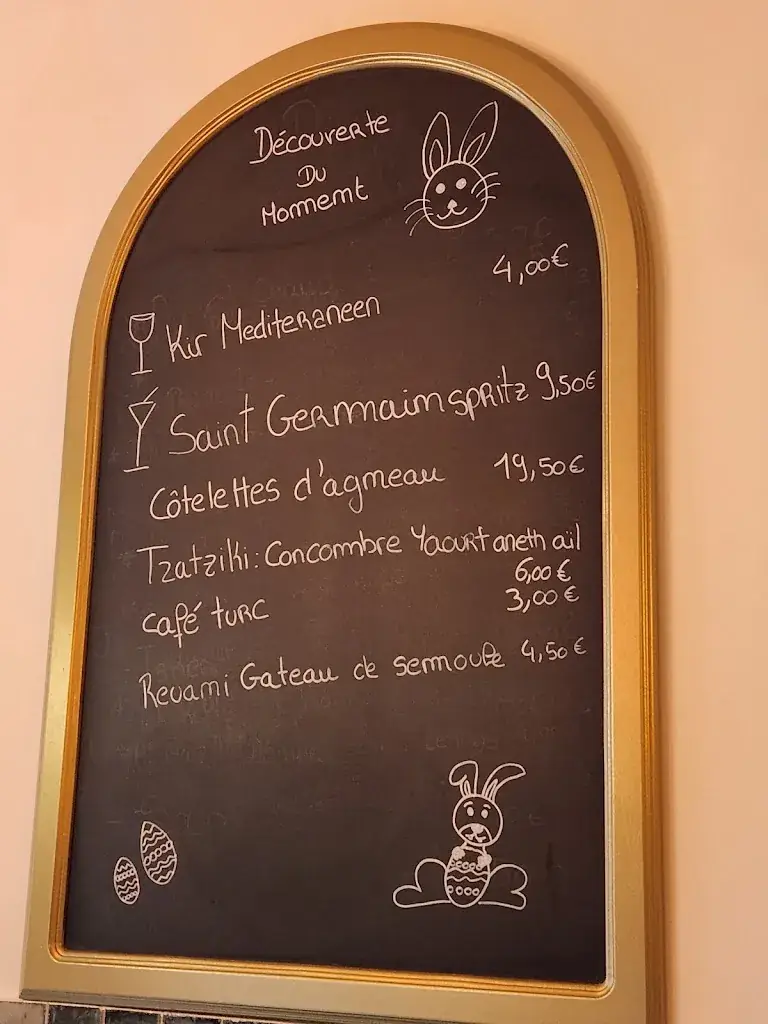 Découverte
Du
Momemt
4,00€
Kir Mediteraneen
Saint Germaim spritz 9,50€
Côtelettes d'agmeau 19,50€
Tzatziki: Concombre Yaourt aneth ail
6,00€
café turc 3,00€
Revami Gateau de semoule 4,50€